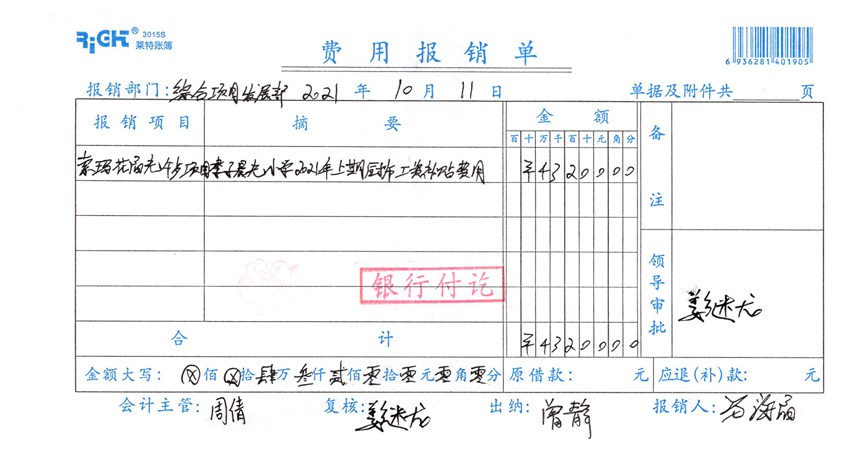 RiGHT® 3015S
莱特账簿
费用报销单
6 936281 401905
报销部门:综合项目发展部 2021 年 10 月 11 日 单据及附件共 页
报销项目 摘要 金额 备注
百 十 万 千 百 十 元 角 分
索玛花 项目 小学2021年上期厨师工资补贴费用 ¥4320000
银行付讫
领导审批 姜继龙
合计 ¥4320000
金额大写: ⊗佰⊗拾肆万叁仟贰佰零拾零元零角零分 原借款: 元 应退(补)款: 元
会计主管: 周倩 复核: 姜继龙 出纳: 曾静 报销人: